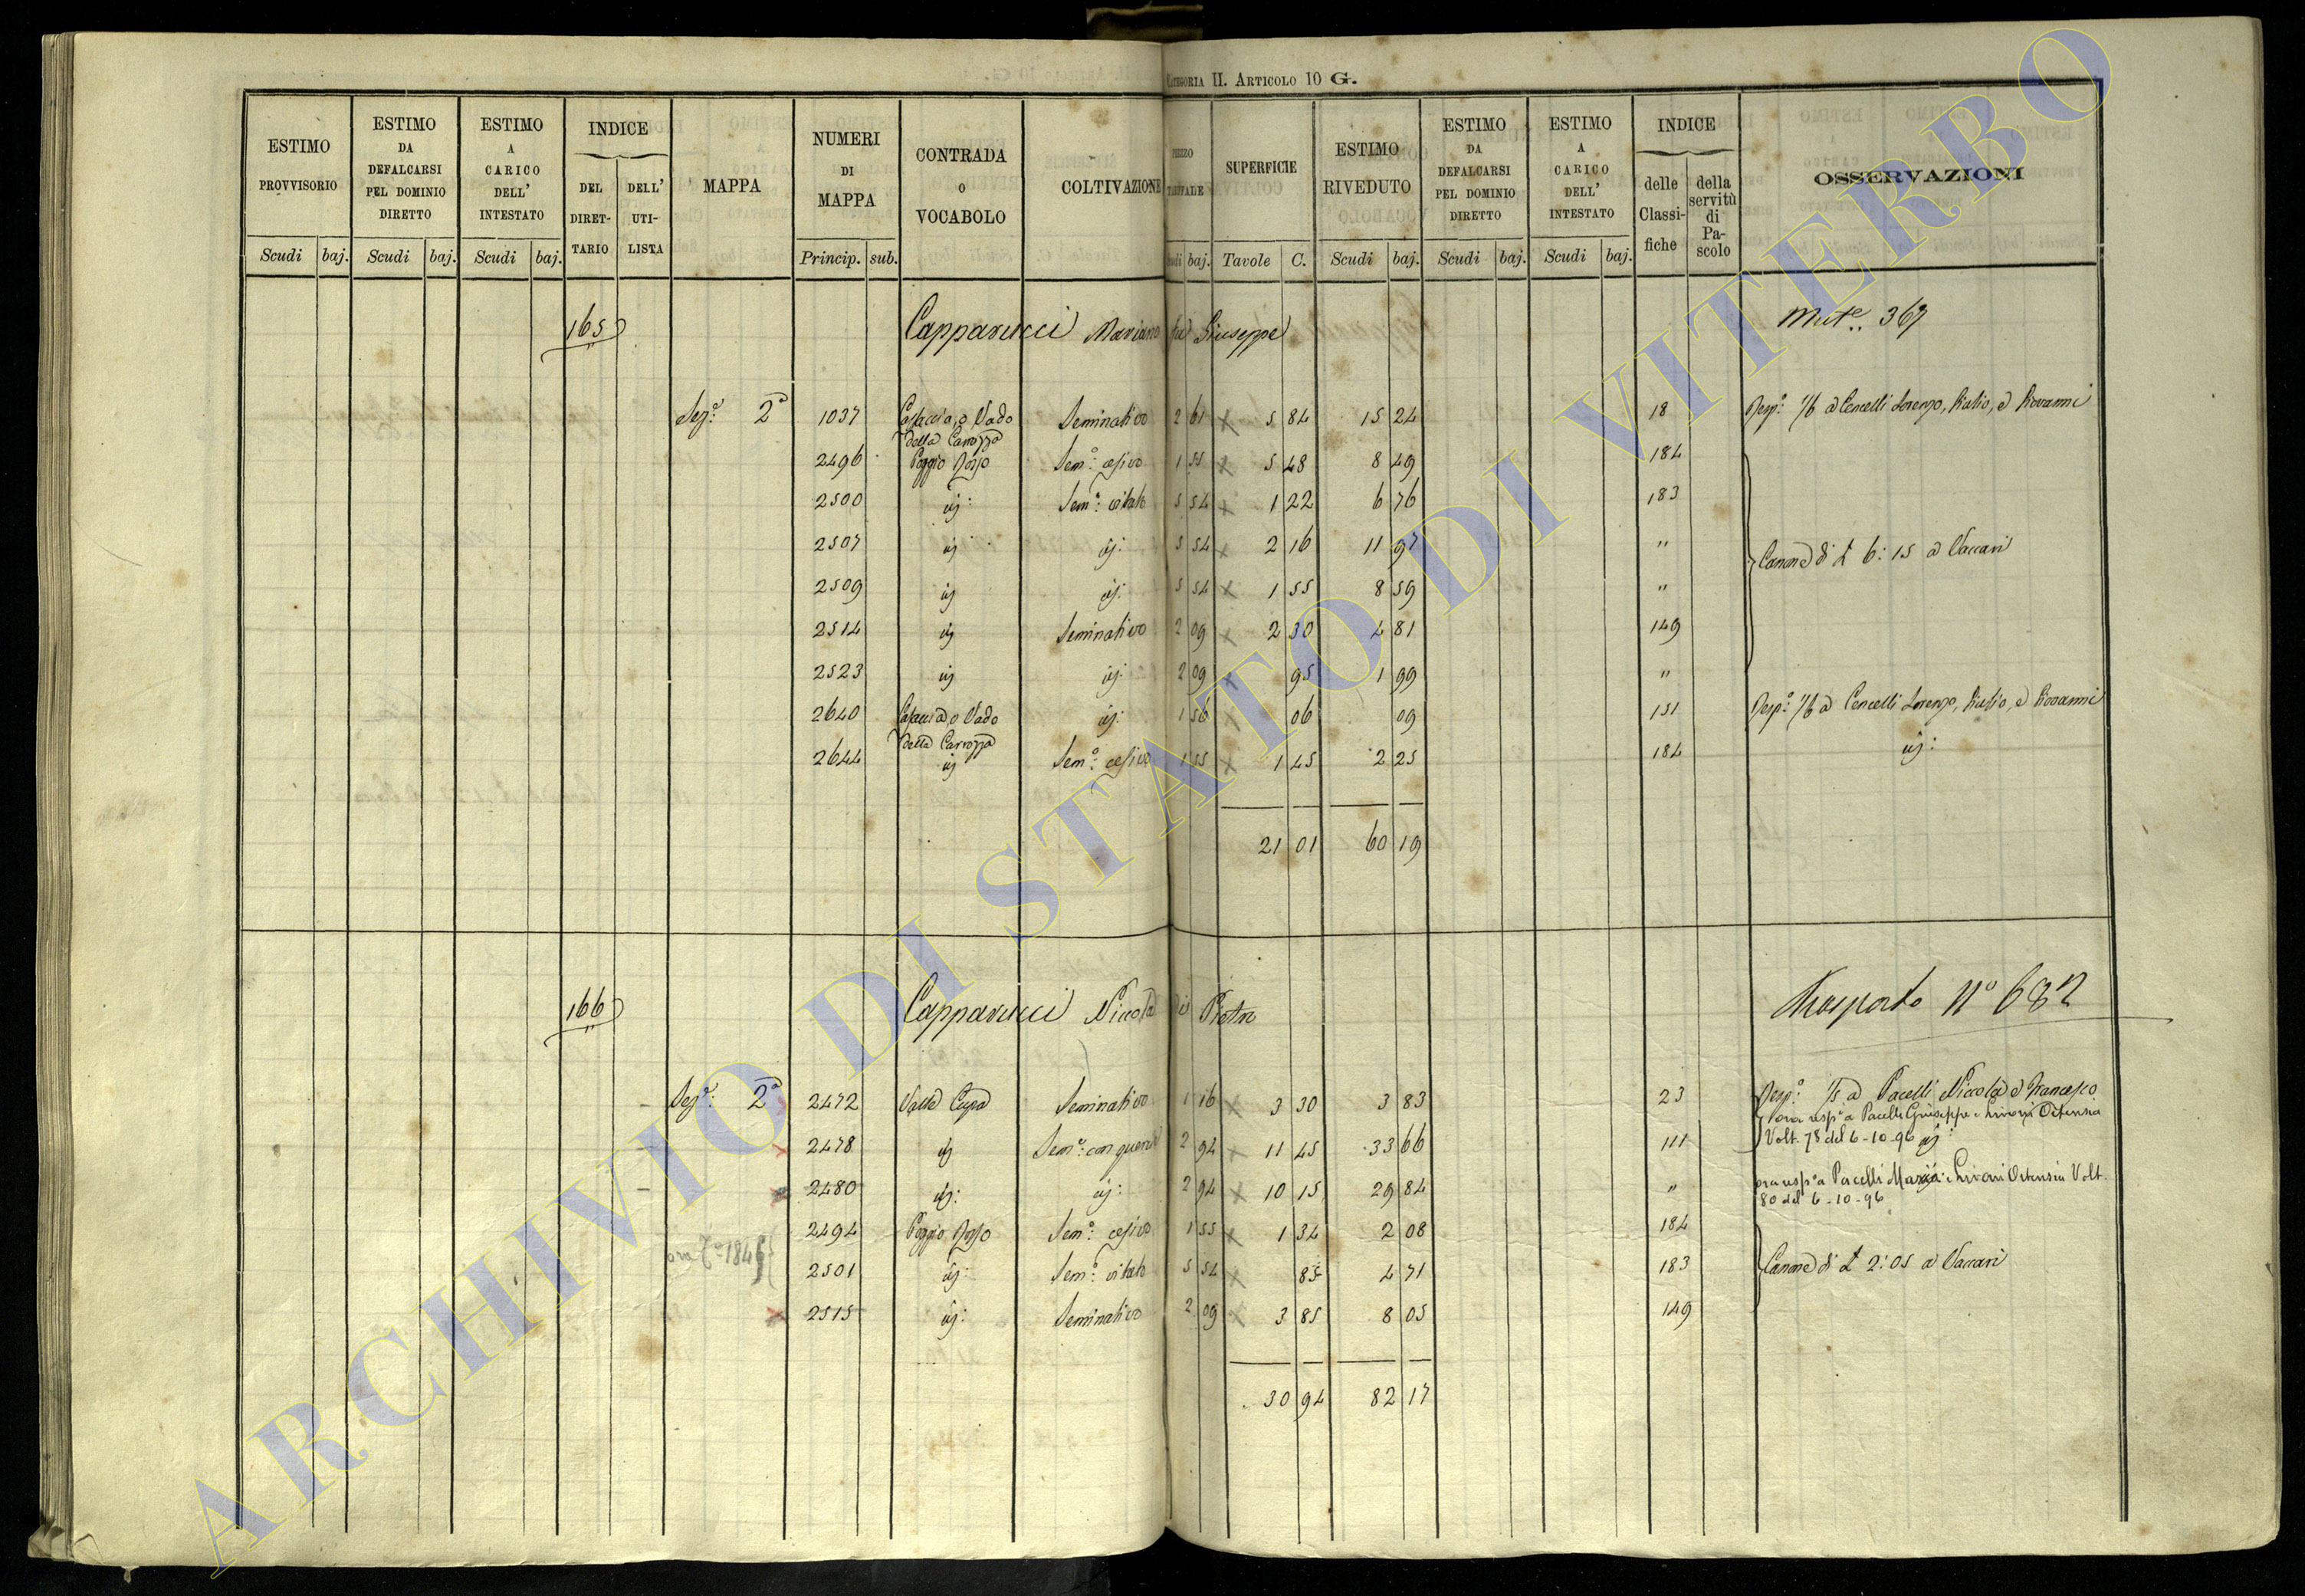 CATEGORIA II. ARTICOLO 10 G.
ESTIMO PROVVISORIO Scudi baj.
ESTIMO DA DEFALCARSI PEL DOMINIO DIRETTO Scudi baj.
ESTIMO A CARICO DELL' INTESTATO Scudi baj.
INDICE DEL DIRET-TARIO DELL' UTI-LISTA
MAPPA
NUMERI DI MAPPA Princip. sub.
CONTRADA O VOCABOLO
COLTIVAZIONE
baj.
SUPERFICIE Tavole C.
ESTIMO RIVEDUTO Scudi baj.
ESTIMO DA DEFALCARSI PEL DOMINIO DIRETTO Scudi baj.
ESTIMO A CARICO DELL' INTESTATO Scudi baj.
INDICE delle Classi-fiche della servitù di Pa-scolo
OSSERVAZIONI
165 Capparucci Mariano fu Giuseppe Mut.e 367
Sez.e 2a 1037 Casaccia, o Vado della Carrozza Seminativo 2 61 5 84 15 24 18 Resp.o 1/6 a Cencelli Lorenzo, Giulio, e Giovanni
2496 Poggio Rosso Sem.o cesivo 1 55 5 48 8 49 184
2500 id: Sem.o vitato 5 54 1 22 6 76 183
2507 id id: 5 54 2 16 11 97 "
Canone di 6:15 a Vaccari
2509 id id: 5 54 1 55 8 59 "
2514 id Seminativo 2 09 2 30 4 81 149
2523 id id: 2 09 95 1 99 "
2640 Casaccia, o Vado della Carrozza id: 1 56 06 09 151 Resp.o 1/6 a Cencelli Lorenzo, Giulio, e Giovanni
2644 id Sem.o cesivo 1 55 1 45 2 25 184 id:
21 01 60 19
166 Capparucci Niccola di Pietro Trasporto No 682
Sez.e 2a 2472 Valle Cupa Seminativo 1 16 3 30 3 83 23 Resp.o 1/5 a Pacelli Niccola e Francesco
ora resp.o a Pacelli Giuseppe e Ortensia
Volt. 78 del 6-10-96 id:
2478 id Sem.o con querce 2 94 11 45 33 66 111
2480 id: id: 2 94 10 15 29 84 " ora resp.o a Pacelli Maria e Ortensia Volt.
80 del 6-10-96
2494 Poggio Rosso Sem.o cesivo 1 55 1 34 2 08 184
ora
2501 id: Sem.o vitato 5 54 85 4 71 183 Canone di 2:05 a Vaccari
2515 id: Seminativo 2 09 3 85 8 05 149
30 94 82 17
ARCHIVIO DI STATO DI VITERBO